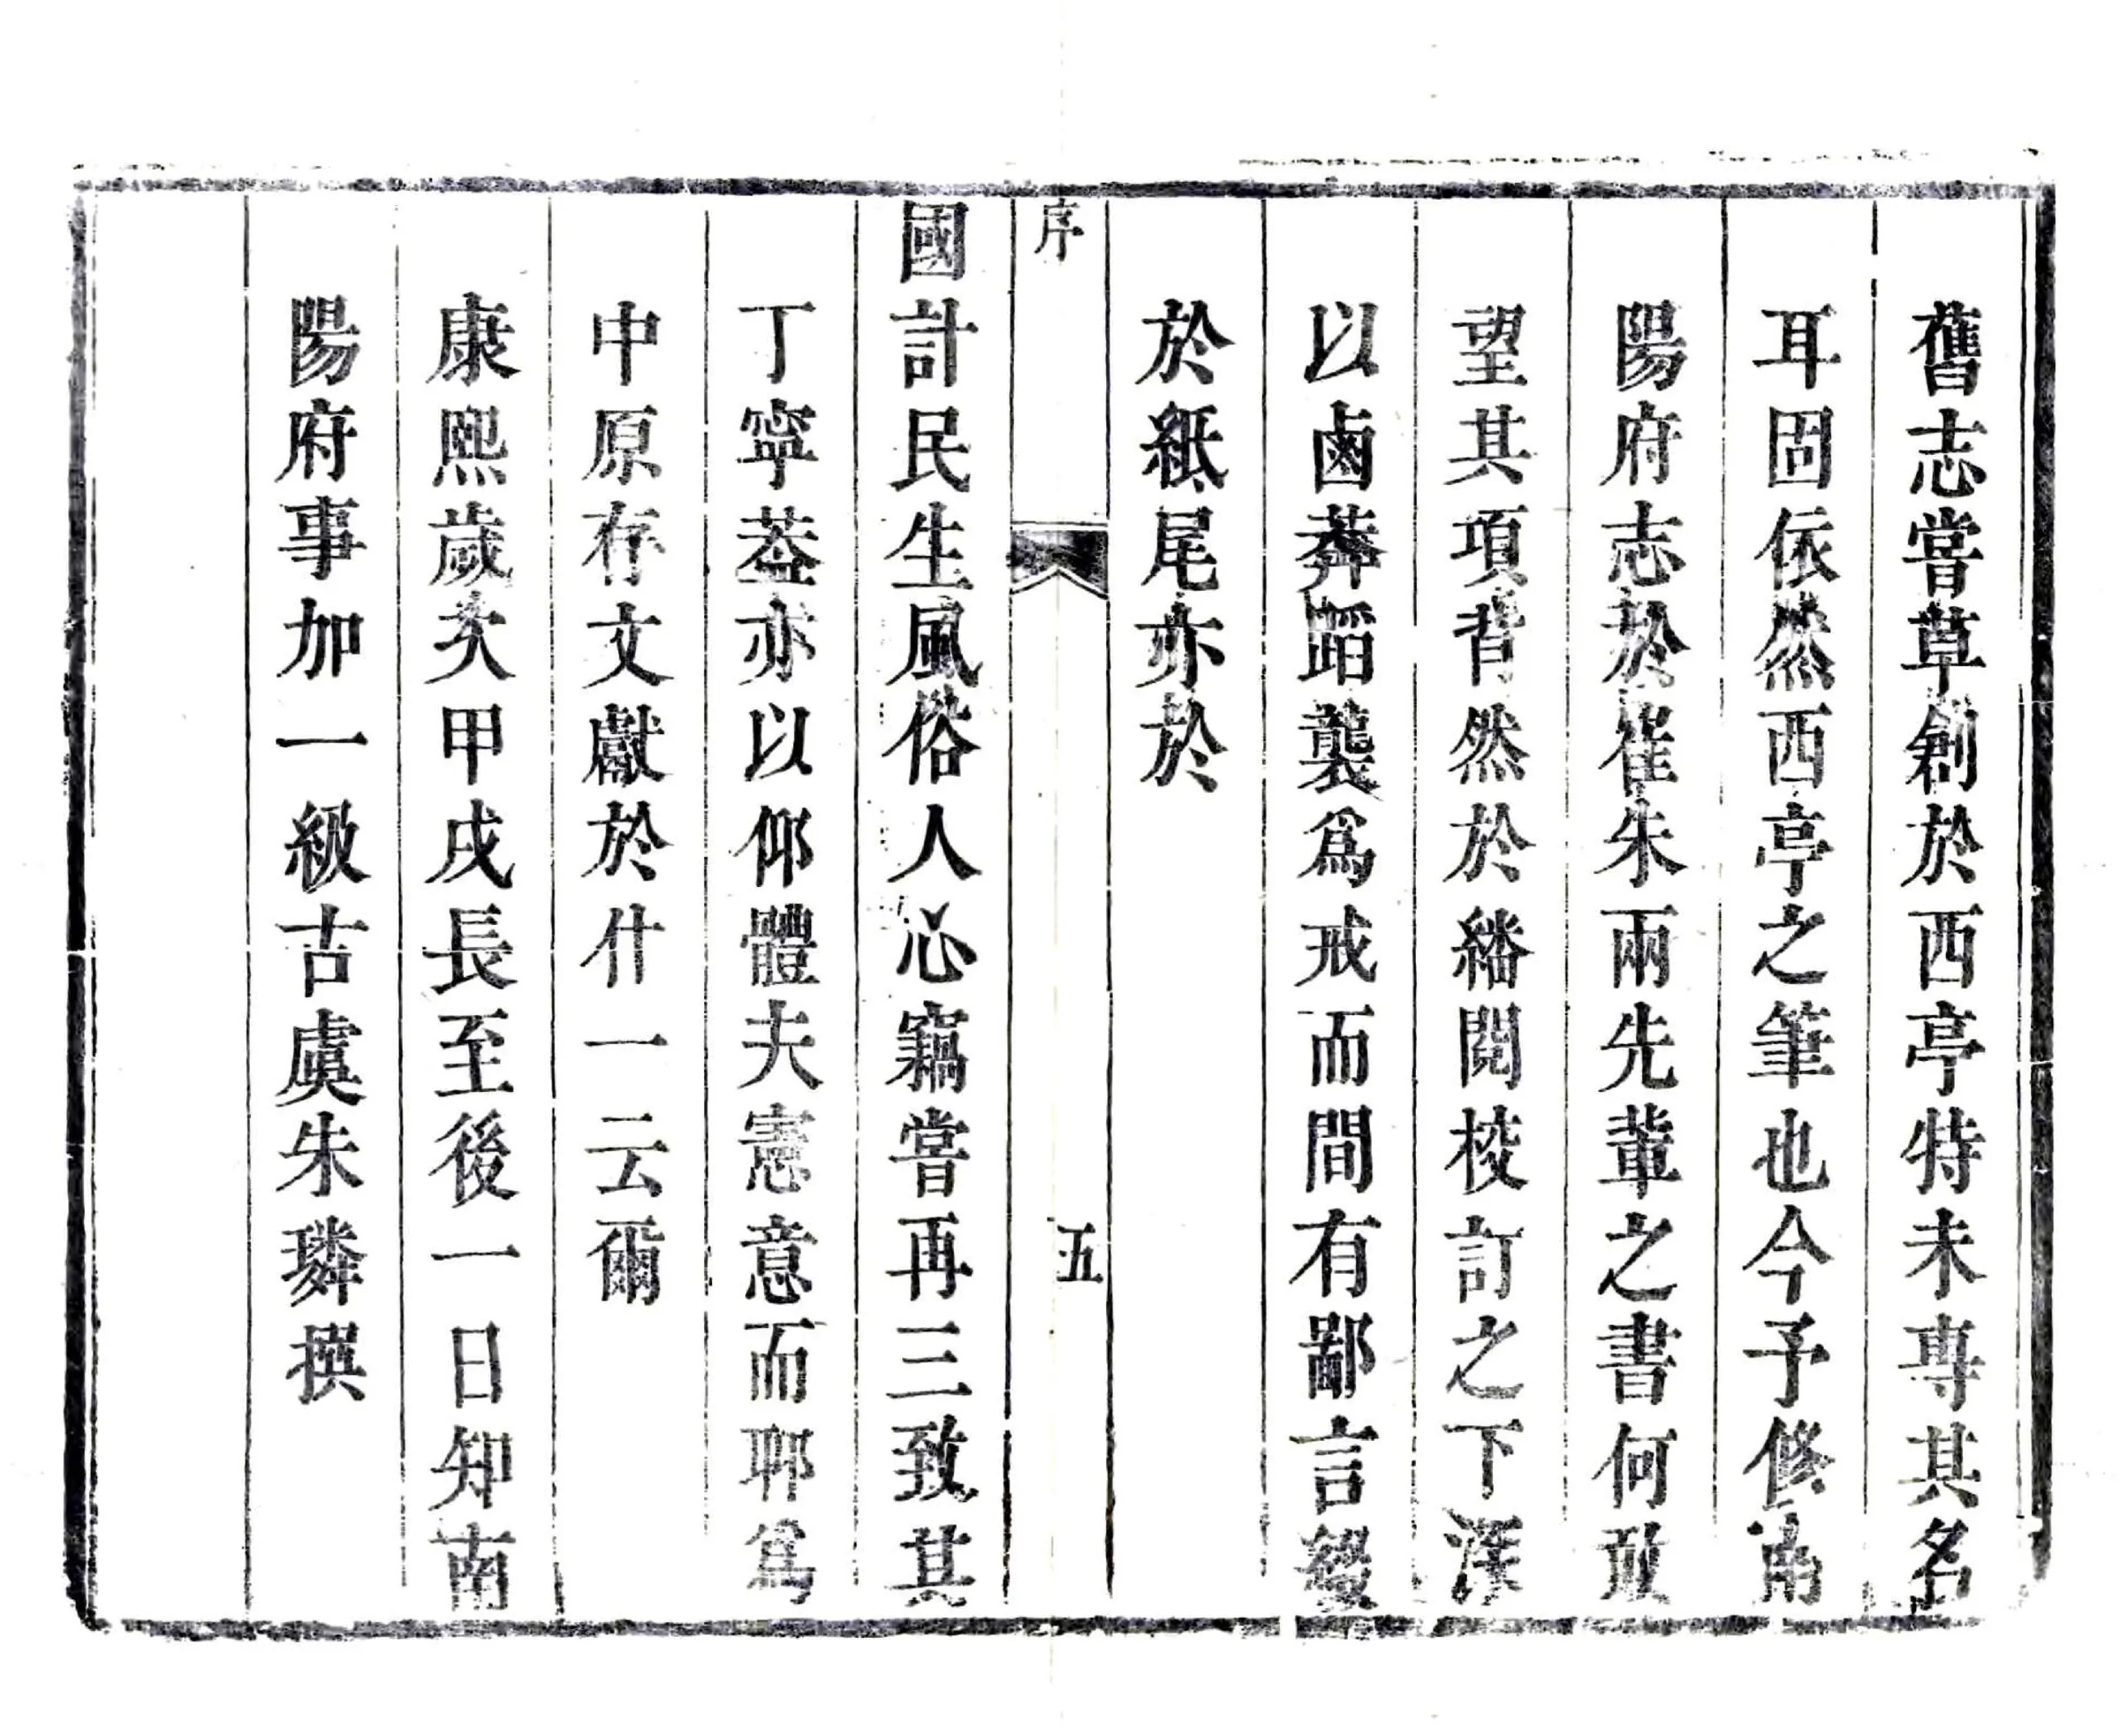 舊志嘗草創於西亭特未專其名
耳固依然西亭之筆也今予修南
陽府志於崔朱兩先輩之書何敢
望其項背然於繙閱校訂之下深
以鹵莽蹈襲爲戒而間有鄙言綴
於紙尾亦於
序
五
國計民生風俗人心竊嘗再三致其
丁寧葢亦以仰體夫憲意而聊爲
中原存文獻於什一云爾
康熙歲次甲戌長至後一日知南
陽府事加一級古虞朱璘撰